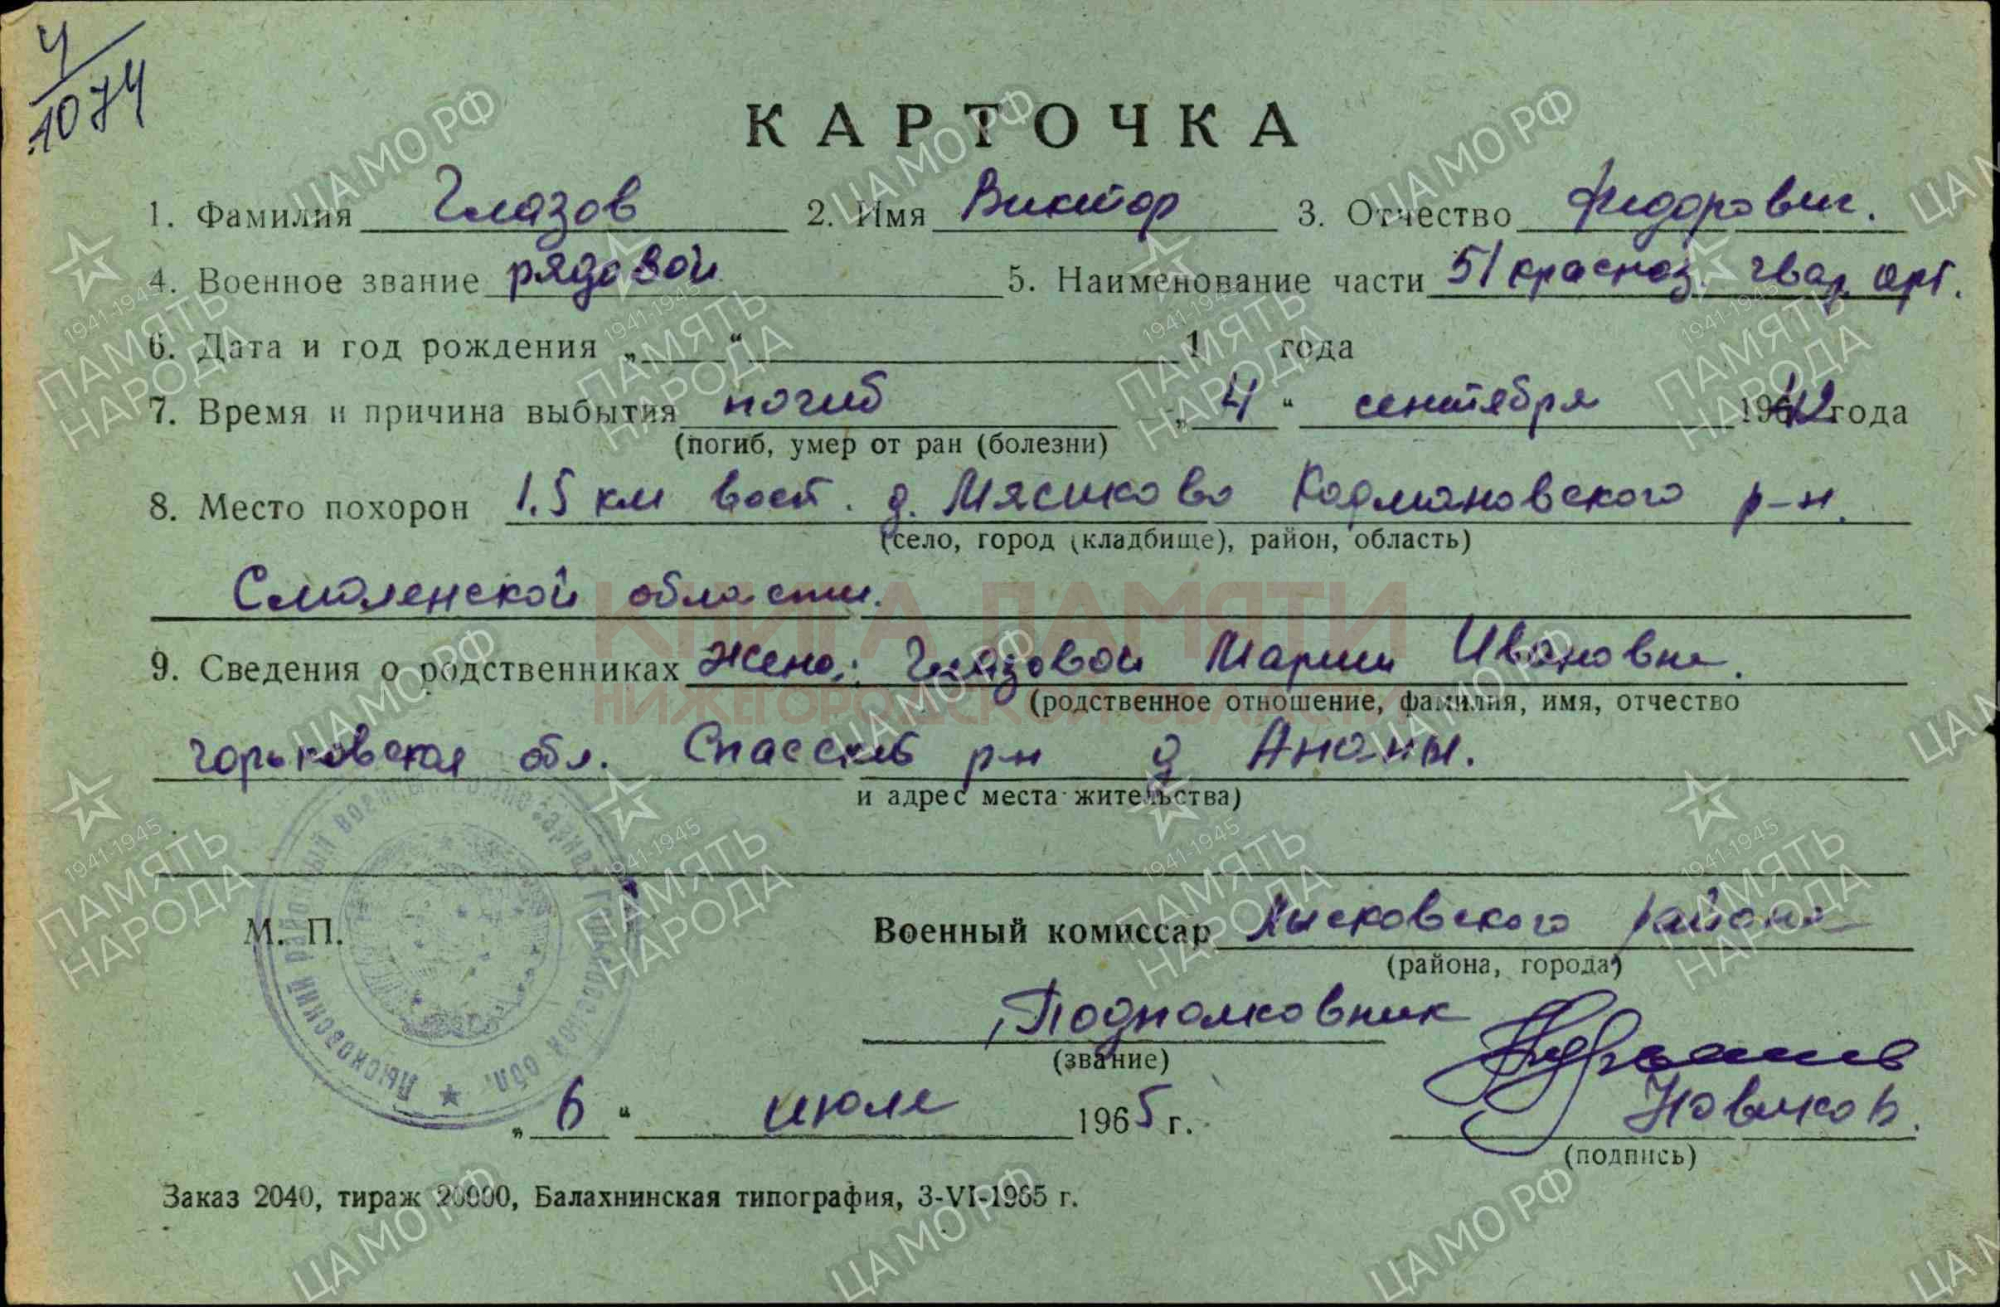 Ч/1074
КАРТОЧКА
1. Фамилия Глазов 2. Имя Виктор 3. Отчество Фидорович.
4. Военное звание рядовой 5. Наименование части 51 красноз. гвар арт.
6. Дата и год рождения „ “ 1 года
7. Время и причина выбытия погиб „4“ сентября 1942 года
(погиб, умер от ран (болезни)
8. Место похорон 1.5 км вост. д. Мясиково Кармановского р-н.
(село, город (кладбище), район, область)
Смоленской области.
9. Сведения о родственниках Жена: Глазовой Марии Ивановне.
(родственное отношение, фамилия, имя, отчество
Горьковская обл. Спасский р-н д Ананы.
и адрес места жительства)
М. П.
Военный комиссар Лысковского района
(района, города)
Подполковник
(звание)
Новиков.
„6“ июля 1965 г.
(подпись)
Заказ 2040, тираж 20000, Балахнинская типография, 3-VI-1965 г.
КНИГА ПАМЯТИ
НИЖЕГОРОДСКОЙ ОБЛАСТИ
ЦА МО РФ
1941-1945
ПАМЯТЬ
НАРОДА